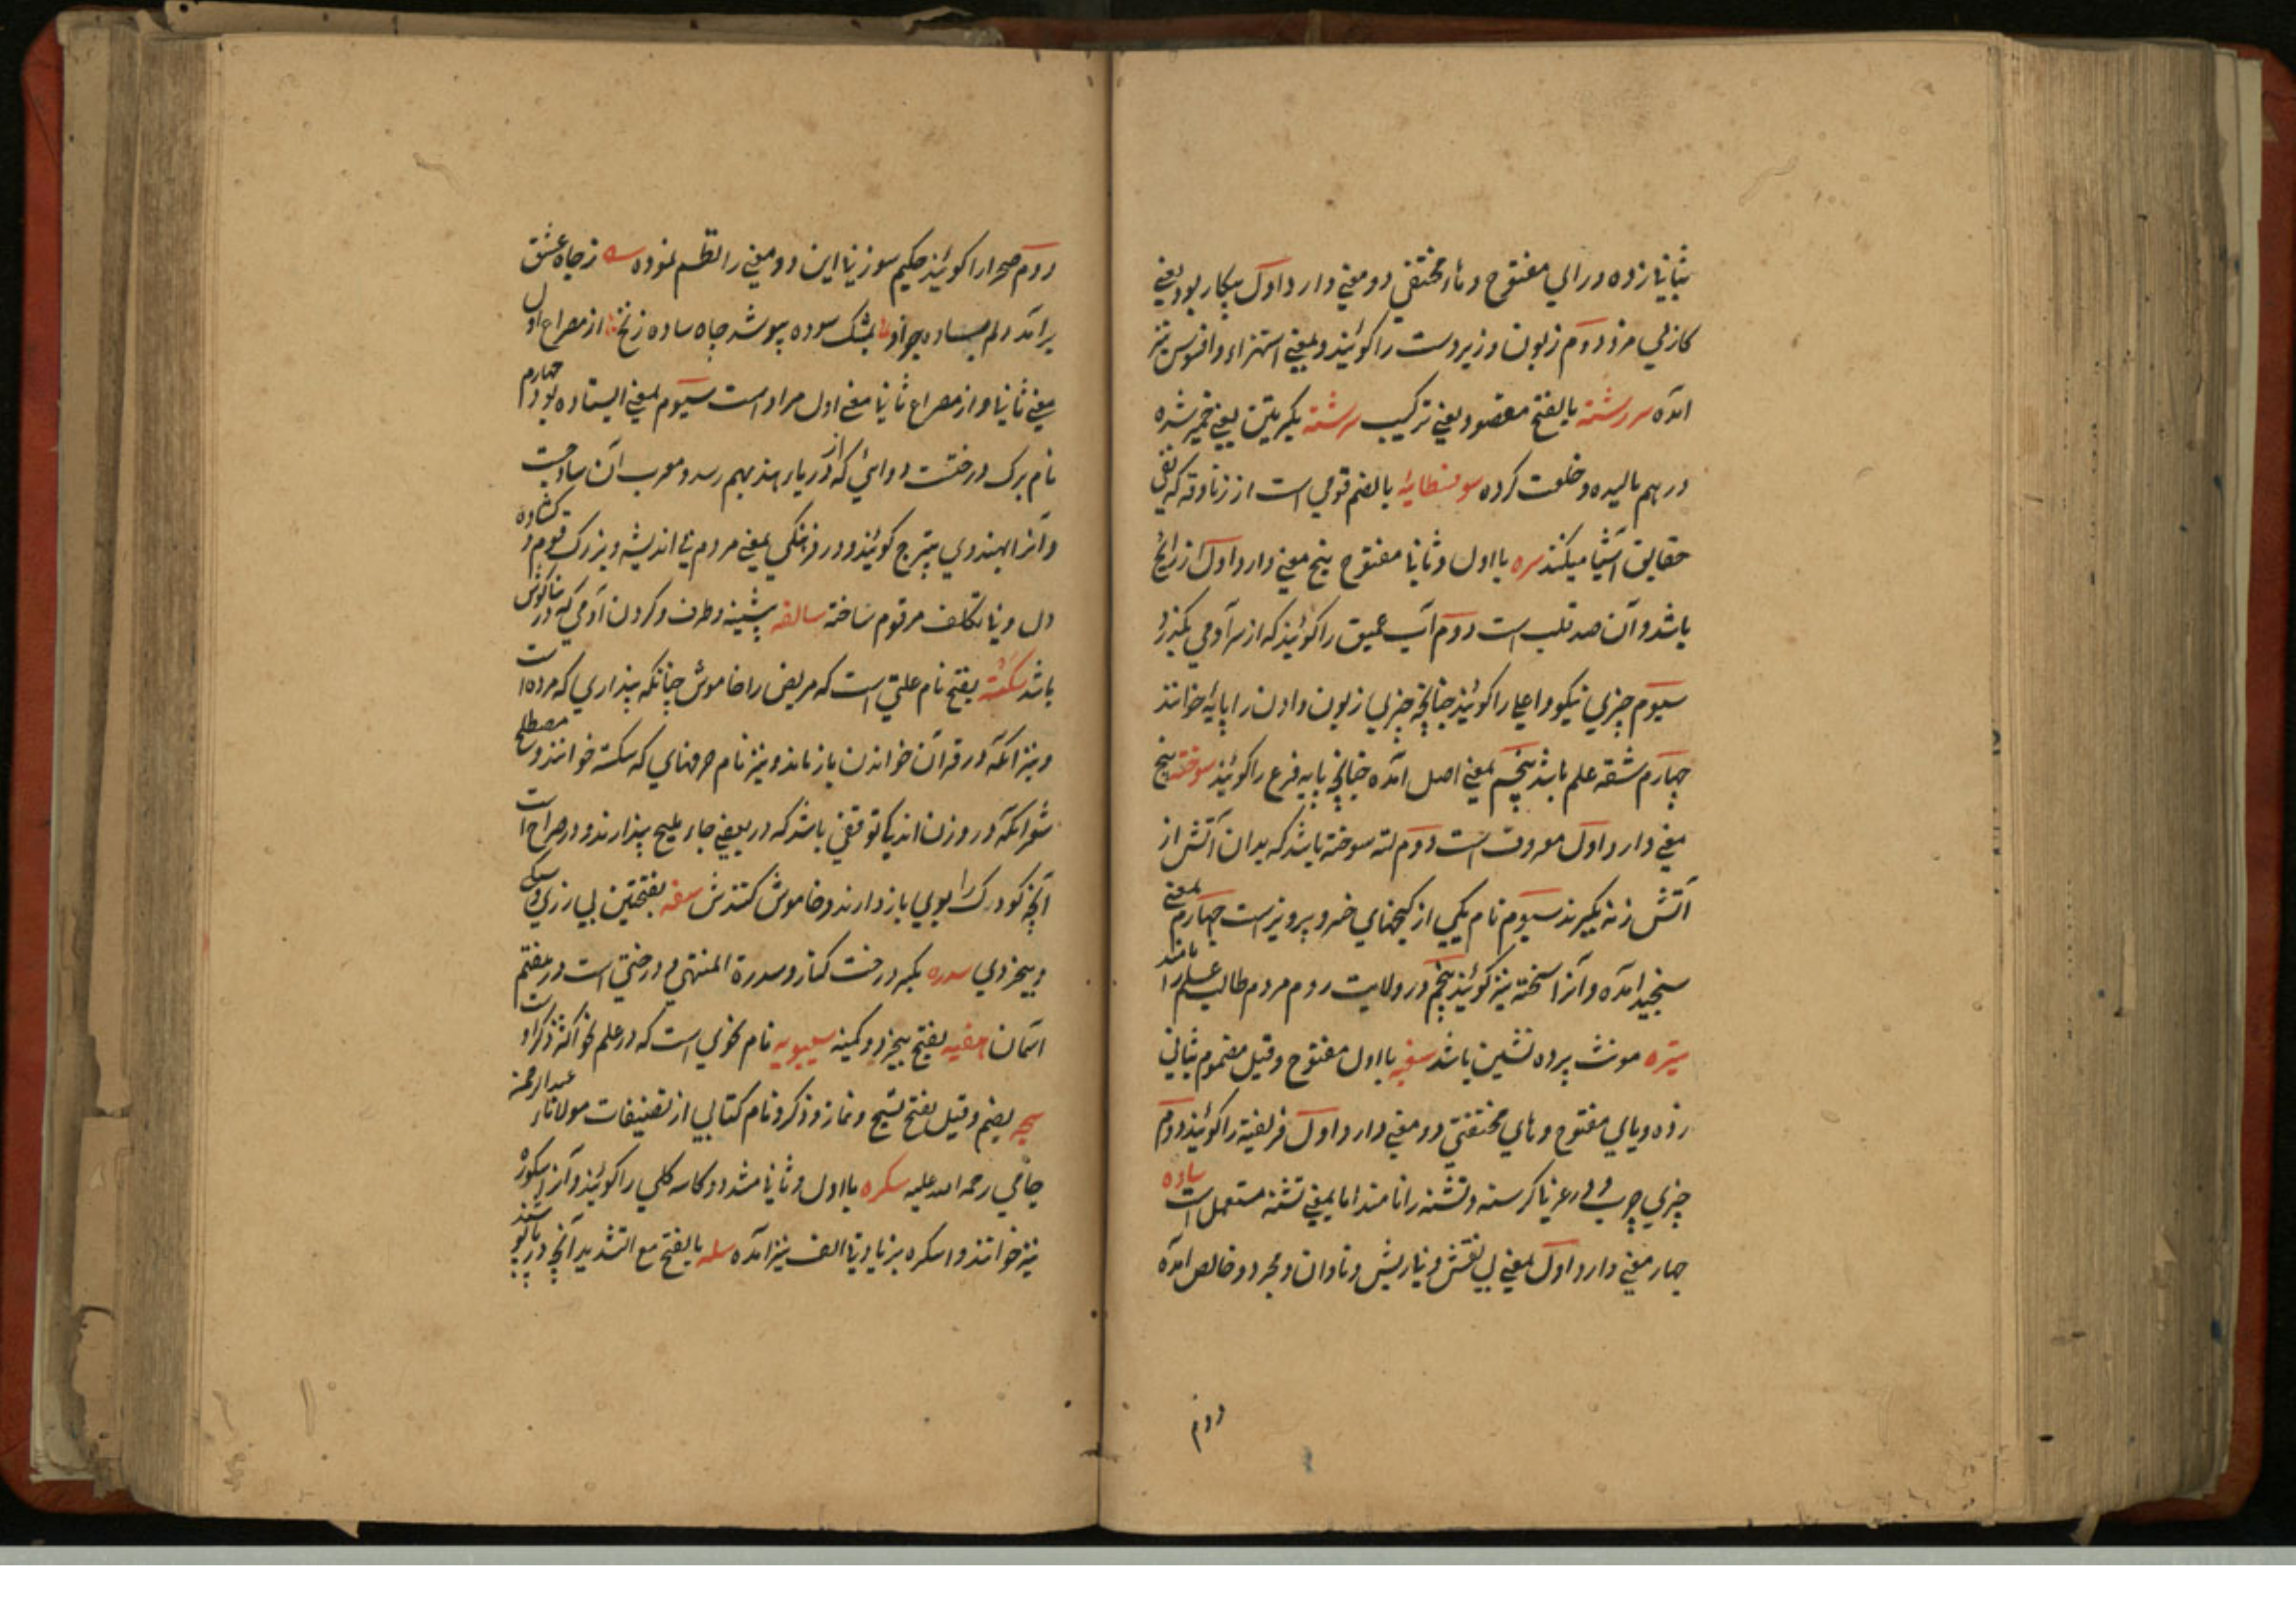 بثانی زده و رای مفتوح و هاء مختفی دو معنی دارد اول بیکار بود یعنی
کار بی مزد دوم زبون و زیردست را کویند و بمعنی استهزاء و افسوس نیز
امده سررشته بالفتح مقصود یعنی ترکیب سرشته بکسرتین یعنی خمیر شده
درهم مالیده و خلعت کرده سوفسطائیه بالضم قومی است از زنادقه که نفی
حقایق اشیا میکنند سره با اول و ثانی مفتوح پنج معنی دارد اول زر رایج
باشد و آن ضد قلب است دوم آب عمیق را کویند که از سر آدمی بکذرد
سیوم چیزی نیکو و اعلی را کویند چنانچه چیزی زبون و ادون را پایه خوانند
چهارم شقه علم باشد پنجم بمعنی اصل امده چنانچه پایه فرع را کویند سوخته پنج
معنی دارد اول معروف است دوم لته سوخته باشد که بدان آتش از
آتش زنه بکیرند سیوم نام یکی از کنجهای خسرو پرویز است چهارم بمعنی
سنجید امده و آنرا سخته نیز کویند پنجم در ولایت روم مردم طالب علم را نامند
ستیره مونث پرده نشین باشد سغبه با اول مفتوح و قیل مضموم بثانی
زده و بای مفتوح و های مختفی دو معنی دارد اول فریفته را کویند دوم
چیزی چرب و در عربی کرسنه و تشنه را نامند اما بمعنی تشنه مستعمل است ساده
چهار معنی دارد اول بمعنی بی نقش و بی ریش و نادان و مجرد و خالص امده
دوم
دوم صحرا را کویند حکیم سوزنی این دو معنی را نظم نموده ز چاه عشق
برآمد دلم بساده چو او بمشک سوده بپوشد چاه ساده زنخ از مصراع اول
معنی ثانی و از مصراع ثانی معنی اول مراد است سیوم بمعنی ایستاده بود چهارم
نام برک درختست دوائی که از دریار هند بهم رسد و معرب آن ساذجست
و آنرا بهندوی پترج کویند و در فرهنکی بمعنی مردم بی اندیشه و بزرک قوم و کشاده
دل و بی تکلف مرقوم ساخته سالفه پیشینه و طرف و کردن آدمی که در بناکوش
باشد سکته بفتح نام علتی است که مریض را خاموش چنانکه پنداری که مرده است
و نیز آنکه در قرآن خواندن باز ماند و نیز نام حرفهای که سکته خوانند و مصطلح
شعرا آنکه در وزن اندک توقفی باشد که در بعضی جاء ملیح پندارند و در صراح است
آنچه کودک را بوی باز دارند و خاموش کنندش سفه بفتحتین بی رزی و سبکی
و بیخردی سدره بکسر درخت کنار و سدرة المنتهی درختی است در هفتم
آسمان سفیه بفتح بیخرد و کمینه سیبویه نام نحوی است که در علم نحو اکثر ذکر او است
سبحه بضم و قیل بفتح تسبیح و نماز و ذکر و نام کتابی از تصنیفات مولاناء عبدالرحمن
جامی رحمه الله علیه سکره با اول و ثانی مشدد کاسه کلی را کویند و آنرا سکوره
نیز خوانند و اسکره بزیادتی الف نیز آمده سله بالفتح مع التشدید آنچه در